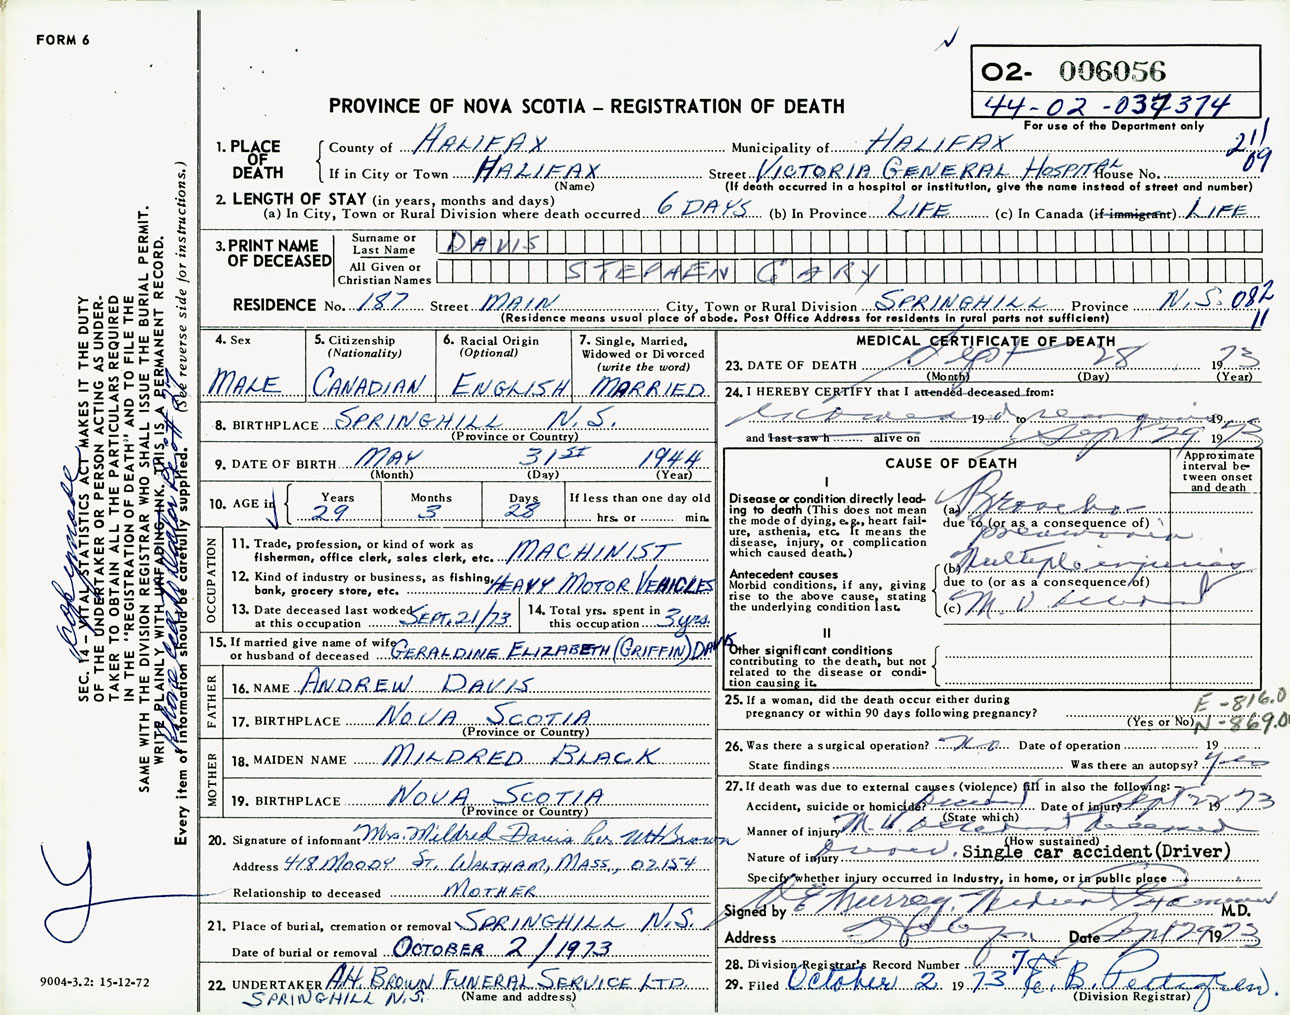 FORM 6
O2- 006056
44-02-037374
For use of the Department only
PROVINCE OF NOVA SCOTIA – REGISTRATION OF DEATH
211
09
1. PLACE OF DEATH
County of HALIFAX Municipality of HALIFAX
If in City or Town HALIFAX Street VICTORIA GENERAL HOSPITAL House No.
(Name) (If death occurred in a hospital or institution, give the name instead of street and number)
2. LENGTH OF STAY (in years, months and days)
(a) In City, Town or Rural Division where death occurred 6 DAYS (b) In Province LIFE (c) In Canada (if immigrant) LIFE
3. PRINT NAME OF DECEASED
Surname or Last Name DAVIS
All Given or Christian Names STEPHEN GARY
RESIDENCE No. 187 Street MAIN City, Town or Rural Division SPRINGHILL Province N.S. 082
11
(Residence means usual place of abode. Post Office Address for residents in rural parts not sufficient)
4. Sex MALE
5. Citizenship (Nationality) CANADIAN
6. Racial Origin (Optional) ENGLISH
7. Single, Married, Widowed or Divorced (write the word) MARRIED
8. BIRTHPLACE SPRINGHILL N.S.
(Province or Country)
9. DATE OF BIRTH MAY 31ST 1944
(Month) (Day) (Year)
10. AGE in Years 29 Months 3 Days 28 If less than one day old hrs. or min.
OCCUPATION
11. Trade, profession, or kind of work as fisherman, office clerk, sales clerk, etc. MACHINIST
12. Kind of industry or business, as fishing, bank, grocery store, etc. HEAVY MOTOR VEHICLES
13. Date deceased last worked at this occupation SEPT. 21/73
14. Total yrs. spent in this occupation 3 yrs.
15. If married give name of wife or husband of deceased GERALDINE ELIZABETH (GRIFFIN) DAVIS
FATHER
16. NAME ANDREW DAVIS
17. BIRTHPLACE NOVA SCOTIA
(Province or Country)
MOTHER
18. MAIDEN NAME MILDRED BLACK
19. BIRTHPLACE NOVA SCOTIA
(Province or Country)
20. Signature of informant Mrs. Mildred Davis Per WH Brown
Address 418 MOODY ST. WALTHAM, MASS., 02154
Relationship to deceased MOTHER
21. Place of burial, cremation or removal SPRINGHILL N.S.
Date of burial or removal OCTOBER 2/1973
22. UNDERTAKER A.H. BROWN FUNERAL SERVICE LTD.
SPRINGHILL N.S. (Name and address)
MEDICAL CERTIFICATE OF DEATH
23. DATE OF DEATH Sept 28 1973
(Month) (Day) (Year)
24. I HEREBY CERTIFY that I attended deceased from:
19 to 19
and last saw h alive on Sept 29 1973
CAUSE OF DEATH
Approximate interval between onset and death
I
Disease or condition directly leading to death (This does not mean the mode of dying, e.g., heart failure, asthenia, etc. It means the disease, injury, or complication which caused death.)
(a) Broncho pneumonia
due to (or as a consequence of)
Antecedent causes
Morbid conditions, if any, giving rise to the above cause, stating the underlying condition last.
(b) Multiple injuries
due to (or as a consequence of)
(c) M V accident
II
Other significant conditions
contributing to the death, but not related to the disease or condition causing it.
25. If a woman, did the death occur either during pregnancy or within 90 days following pregnancy?
(Yes or No)
E -816.0
N -869.0
26. Was there a surgical operation? No Date of operation 19
State findings Was there an autopsy? Yes
27. If death was due to external causes (violence) fill in also the following:
Accident, suicide or homicide? Accident Date of injury Sept 22 1973
(State which)
Manner of injury M.V. accident deceased
(How sustained)
Nature of injury driver. Single car accident(Driver)
Specify whether injury occurred in industry, in home, or in public place
Signed by Murray, Medical Examiner M.D.
Address Date Sept 29 1973
28. Division Registrar's Record Number
29. Filed October 2 1973
(Division Registrar)
SEC. 14 – VITAL STATISTICS ACT MAKES IT THE DUTY
OF THE UNDERTAKER OR PERSON ACTING AS UNDERTAKER
TO OBTAIN ALL THE PARTICULARS REQUIRED
IN THE "REGISTRATION OF DEATH" AND TO FILE THE
SAME WITH THE DIVISION REGISTRAR WHO SHALL ISSUE THE BURIAL PERMIT.
WRITE PLAINLY WITH UNFADING INK. THIS IS A PERMANENT RECORD.
Every item of information should be carefully supplied. (See reverse side for instructions.)
9004-3.2: 15-12-72